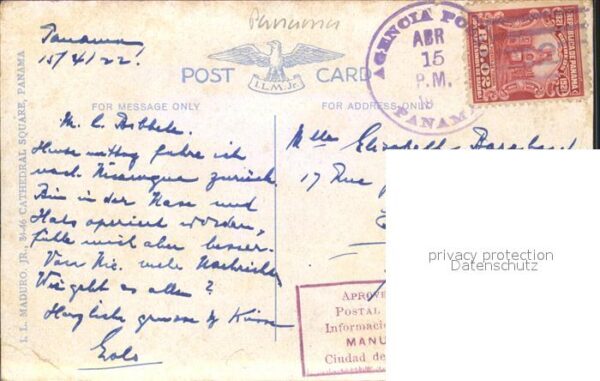 Panama
Panama
15/4/22.
POST CARD
I.L.M. Jr.
FOR MESSAGE ONLY
FOR ADDRESS ONLY
AGENCIA PO
ABR
15
P.M.
PANAMA
REPUBLICA DE PANAMA
I. L. MADURO, JR., 34-46 CATHEDRAL SQUARE, PANAMA
Heute mittag fahre ich
nach Nicaragua zurück.
Bin in der Nase und
Hals operiert worden,
fühle mich aber besser.
Von Nic. mehr Nachrichten
Wie geht es allen?
Herzliche grüsse & Küsse
Mlle Elisabeth
17 Rue
privacy protection
Datenschutz
APROVE
POSTAL
Informacio
MANU
Ciudad de